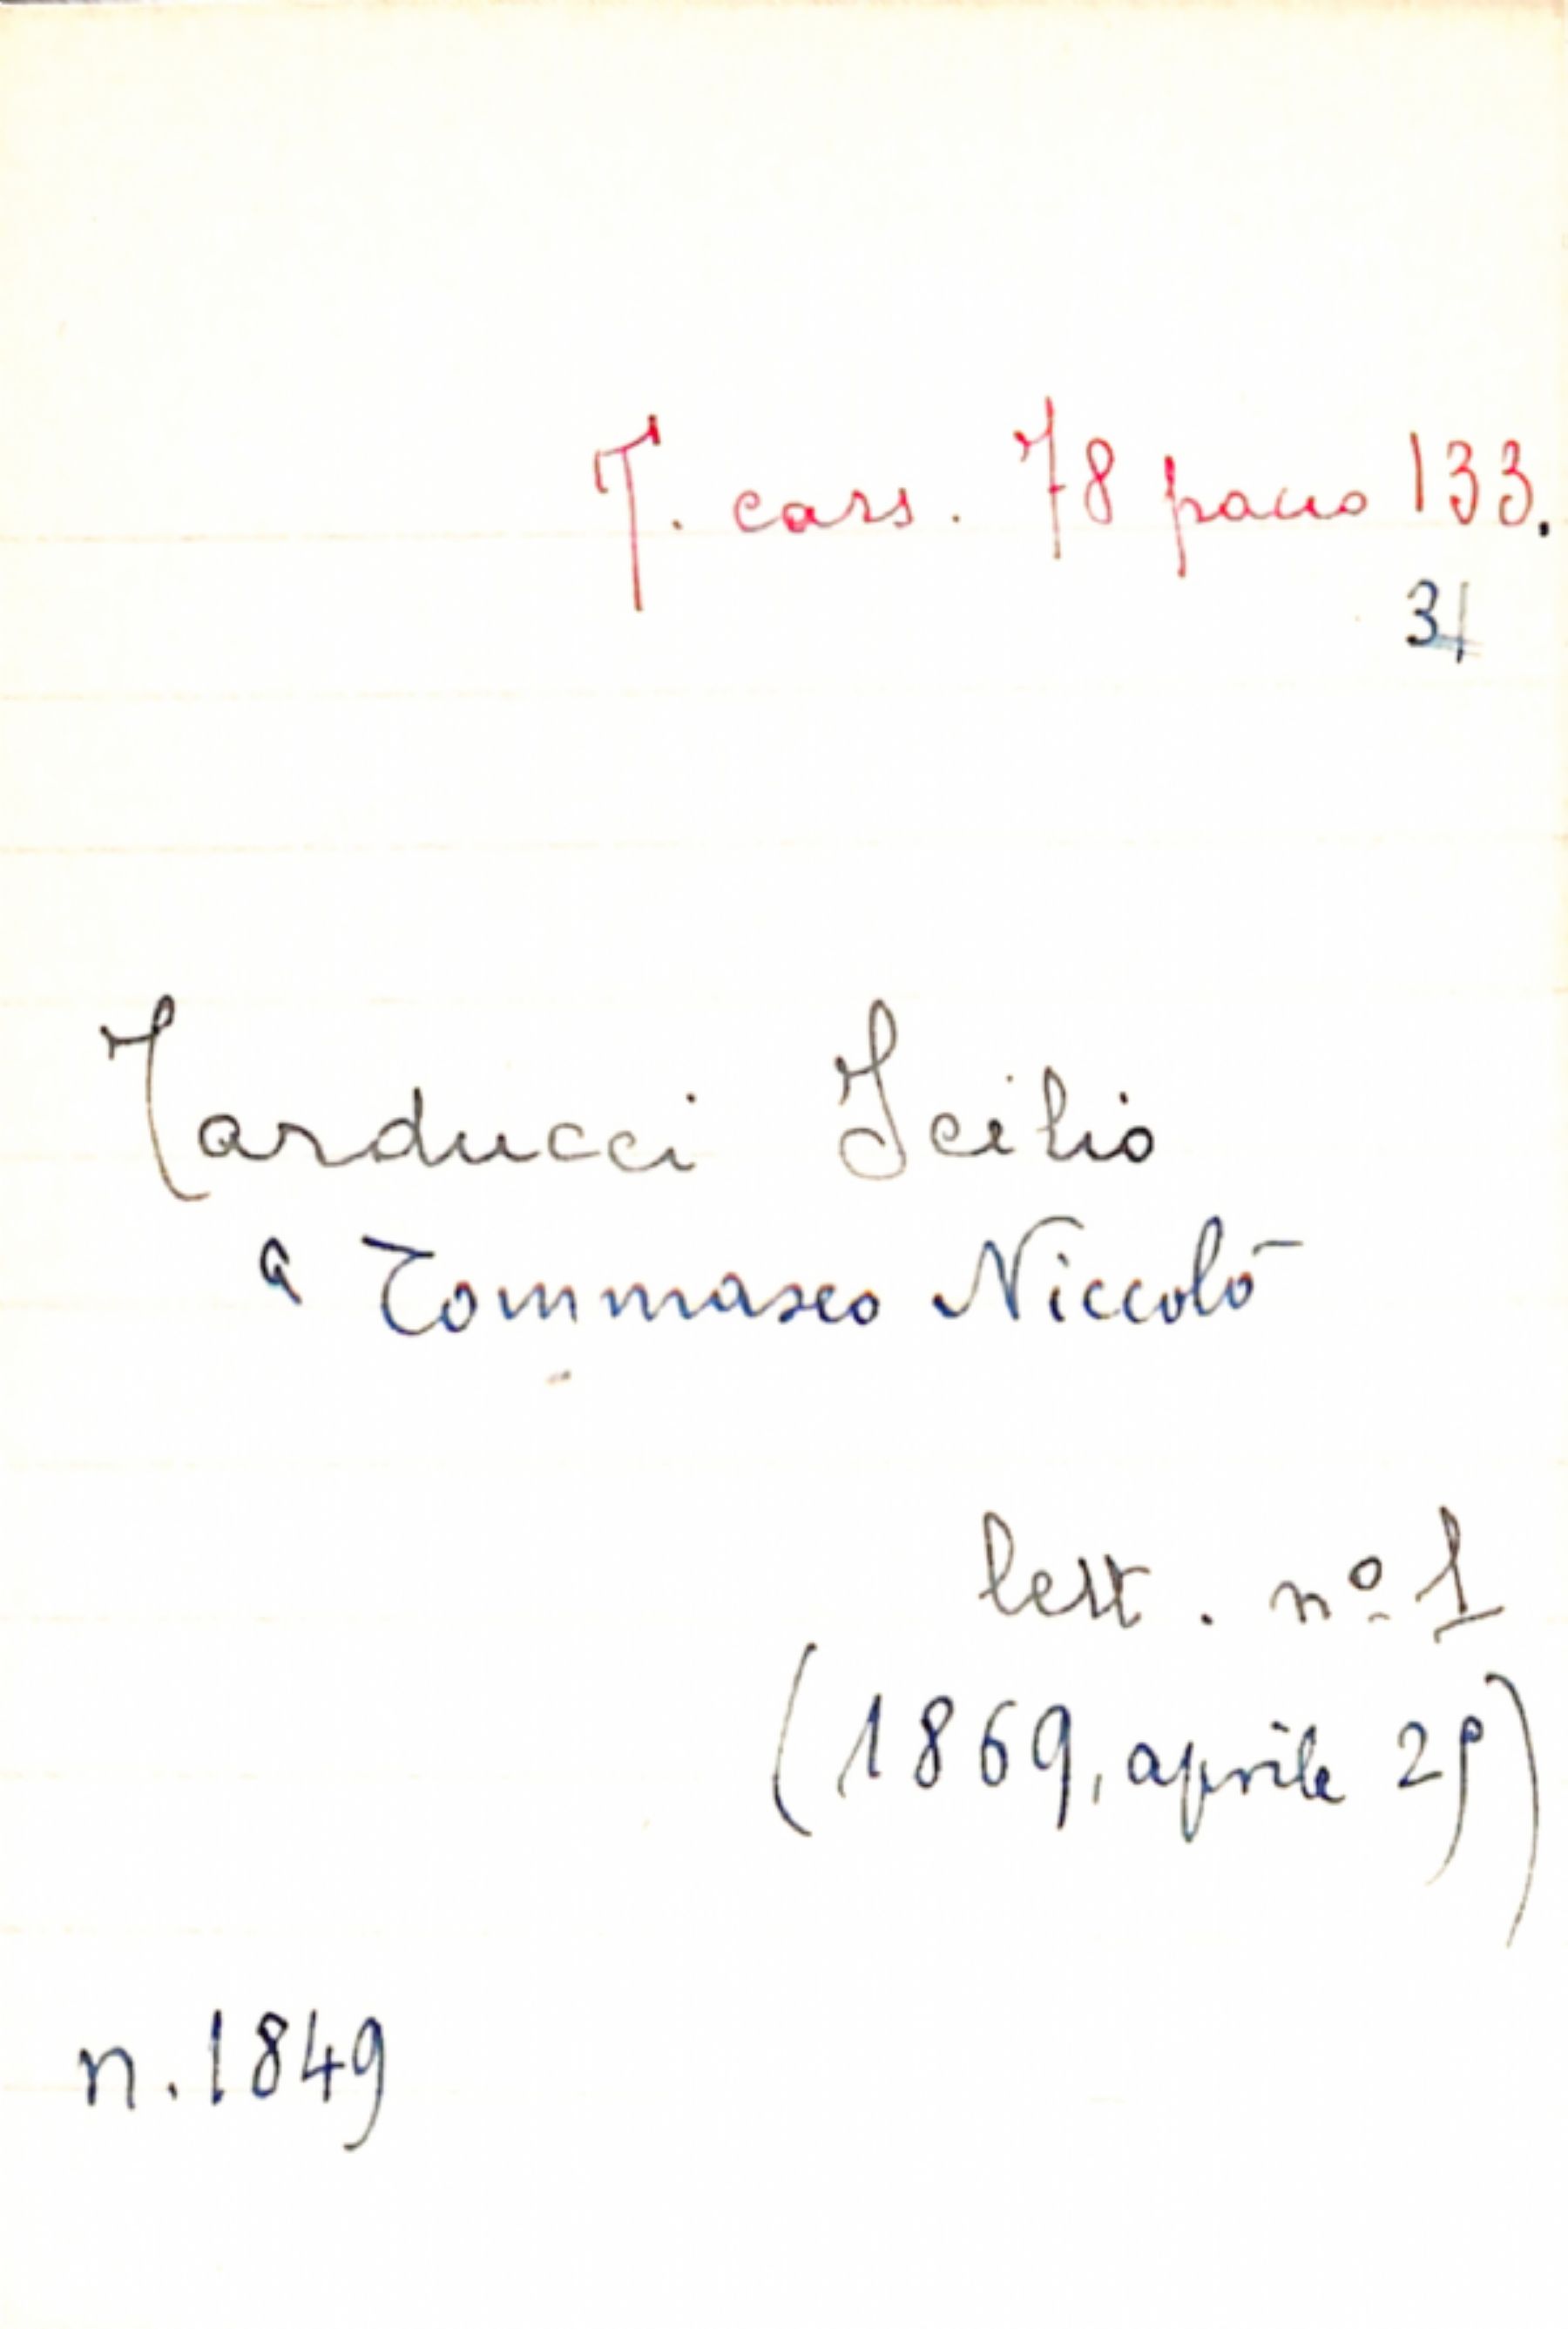 T. cass. 78 pacco 133.
31
Tarducci Icilio
a Tommaseo Niccolò
lett. nº 1
(1869, aprile 29)
n. 1849